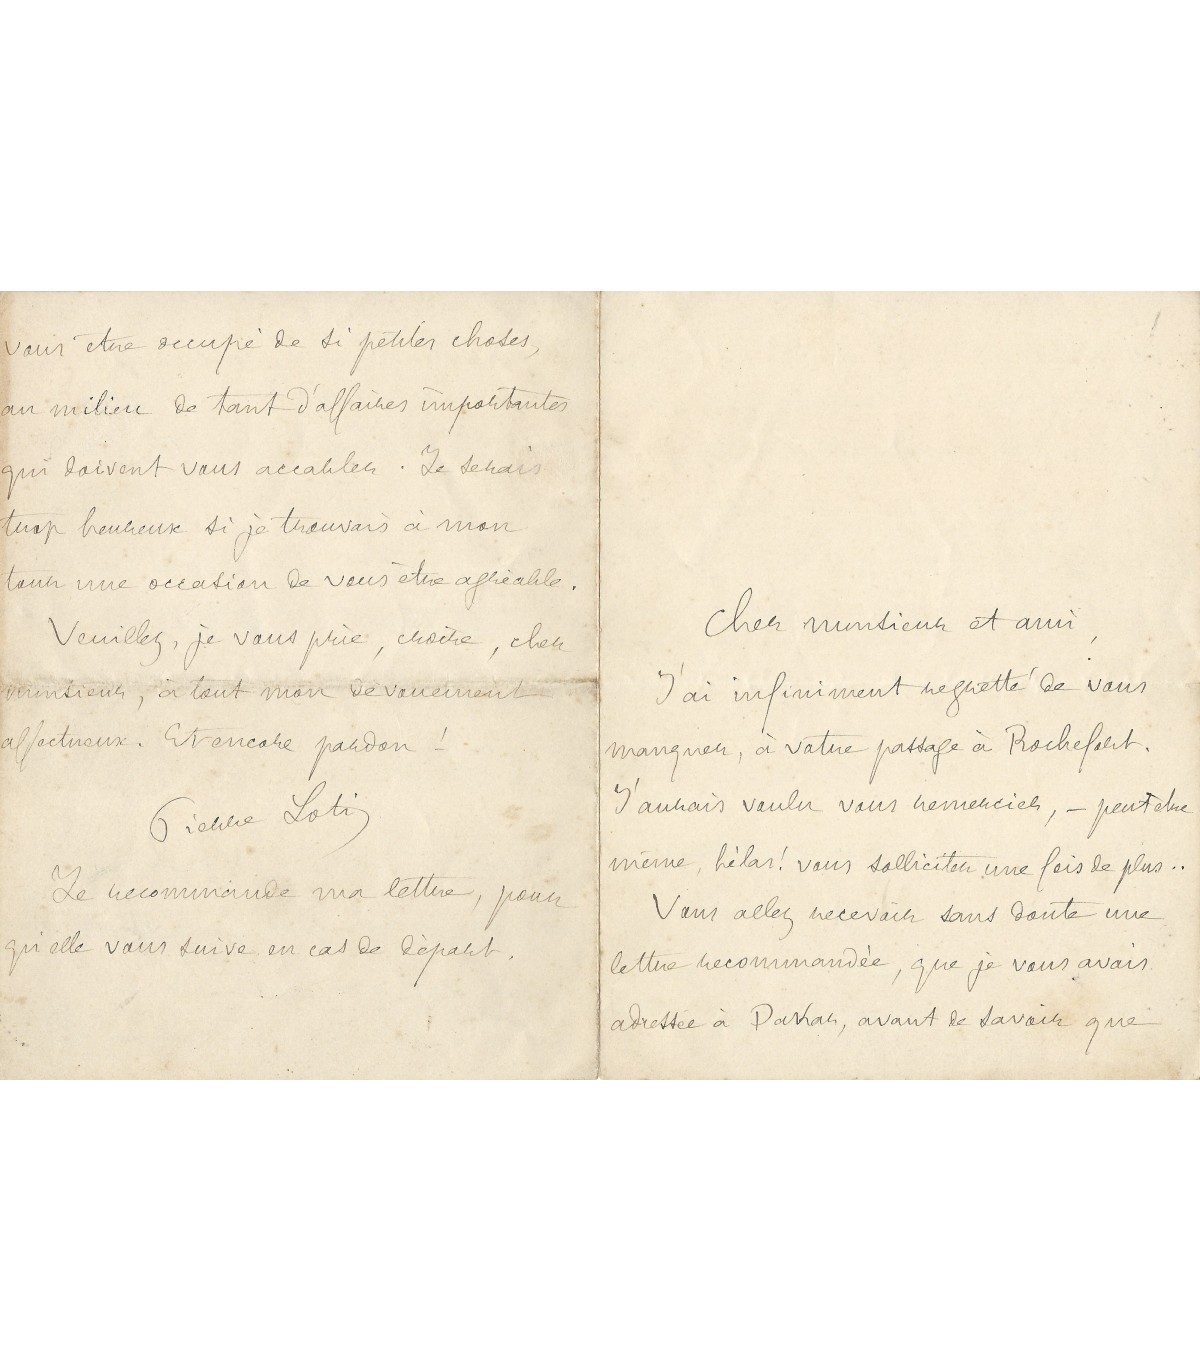 Cher monsieur et ami,
J'ai infiniment regretté de vous
manquer, à votre passage à Rochefort.
J'aurais voulu vous remercier, – peut etre
même, hélas! vous solliciter une fois de plus..
Vous allez recevoir sans doute une
lettre recommandée, que je vous avais
adressée à Dakar, avant de savoir que
vous être occupé de si petites choses,
au milieu de tant d'affaires importantes
qui doivent vous accabler. Je serais
trop heureux si je trouvais à mon
tour une occasion de vous être agréable.
Veuillez, je vous prie, croire, cher
monsieur, à tout mon dévouement
affectueux. Et encore pardon !
Pierre Loti
Je recommande ma lettre, pour
qu'elle vous suive en cas de départ.